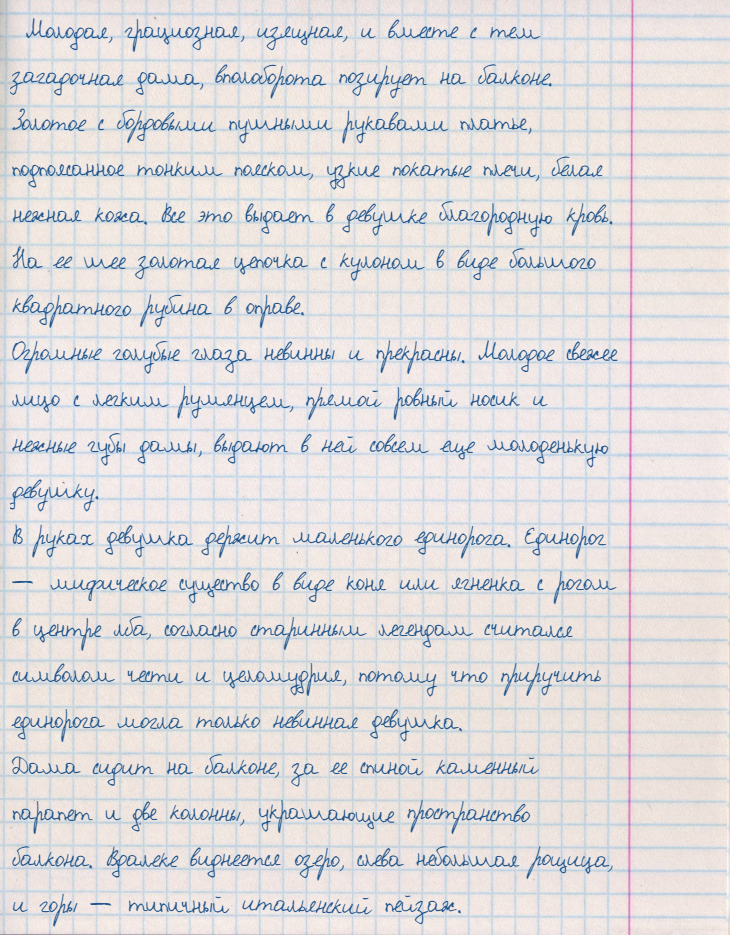 Молодая, грациозная, изящная, и вместе с тем
загадочная дама, вполоборота позирует на балконе.
Золотое с бордовыми пушными рукавами платье,
подпоясанное тонким пояском, узкие покатые плечи, белая
нежная кожа. Все это выдает в девушке благородную кровь.
На ее шее золотая цепочка с кулоном в виде большого
квадратного рубина в оправе.
Огромные голубые глаза невинны и прекрасны. Молодое свежее
лицо с легким румянцем, прямой ровный носик и
нежные губы дамы, выдают в ней совсем еще молоденькую
девушку.
В руках девушка держит маленького единорога. Единорог
— мифическое существо в виде коня или ягненка с рогом
в центре лба, согласно старинным легендам считался
символом чести и целомудрия, потому что приручить
единорога могла только невинная девушка.
Дама сидит на балконе, за ее спиной каменный
парапет и две колонны, украшающие пространство
балкона. Вдалеке виднеется озеро, слева небольшая рощица,
и горы — типичный итальянский пейзаж.